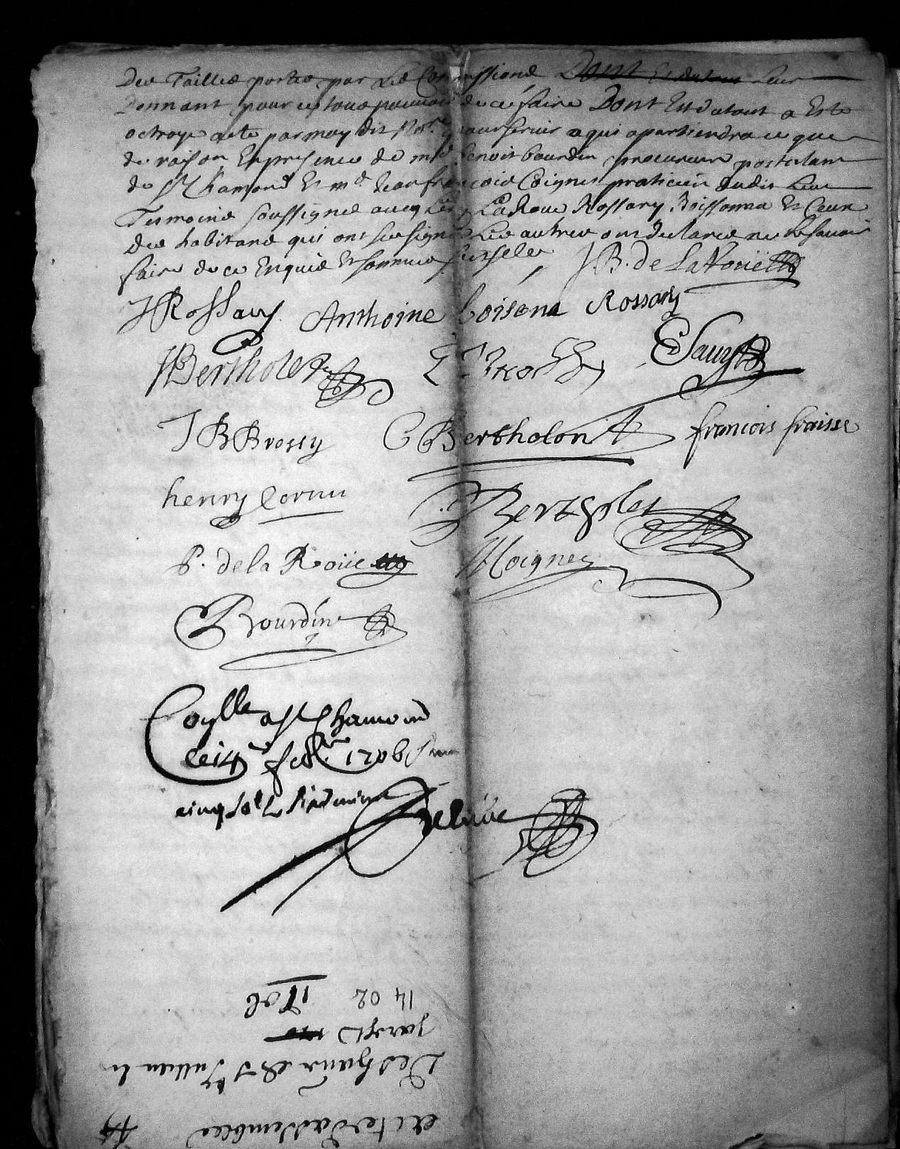 des Tailles portés par les Commissions
Donnant pour ce tous pouvoirs de ce faire Dont Et du tout a Esté
octroyé acte par moy dit No.re pour servir a qui apartiendra ce que
de raison En presence de m.re Benoit bourdin procureur postulant
de St Chamond Et m.e Jean françois Coignet praticien dudit Lieu
Temoins soussignes avecq Les La Roue Rossary Boissonna Et Ceux
des habitans qui ont sceu signer Les autres ont declaré ne le savoir
faire de ce Enquis Et sommés
JB. de La Roüe
J Rossary Anthoine boisona Rossary
JBertholet
E Sauzet
J B Brossy C Bertholon francois fraisse
henry Cornu Bertholet
P. de la Roüe Coignet
Bourdin
Coylle a St Chamond
Le 14.e feb.r 1706
cinq solz
Deleüve
acte d'assemblee
St Jullien
14 02